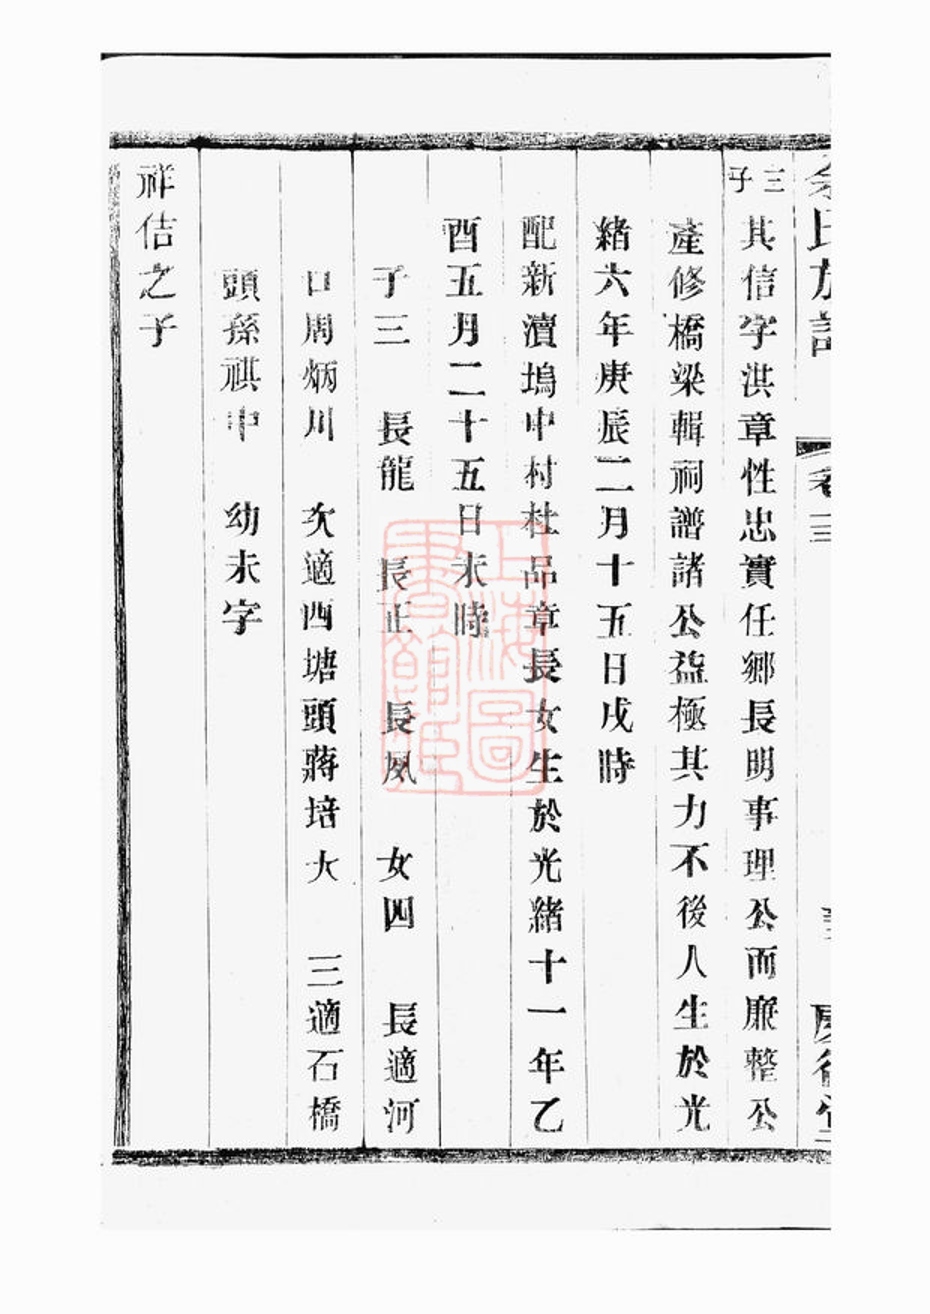 余氏族譜 卷三 慶衍堂
三子 其信字洪章性忠實任鄉長明事理公而廉整公
產修橋梁輯祠譜諸公益極其力不後人生於光
緒六年庚辰二月十五日戌時
配新瀆塢中村杜品章長女生於光緒十一年乙
酉五月二十五日未時
子三 長龍 長正 長夙 女四 長適河
口周炳川 次適西塘頭蔣培大 三適石橋
頭孫祺中 幼未字
祥佶之子
上海圖書館藏